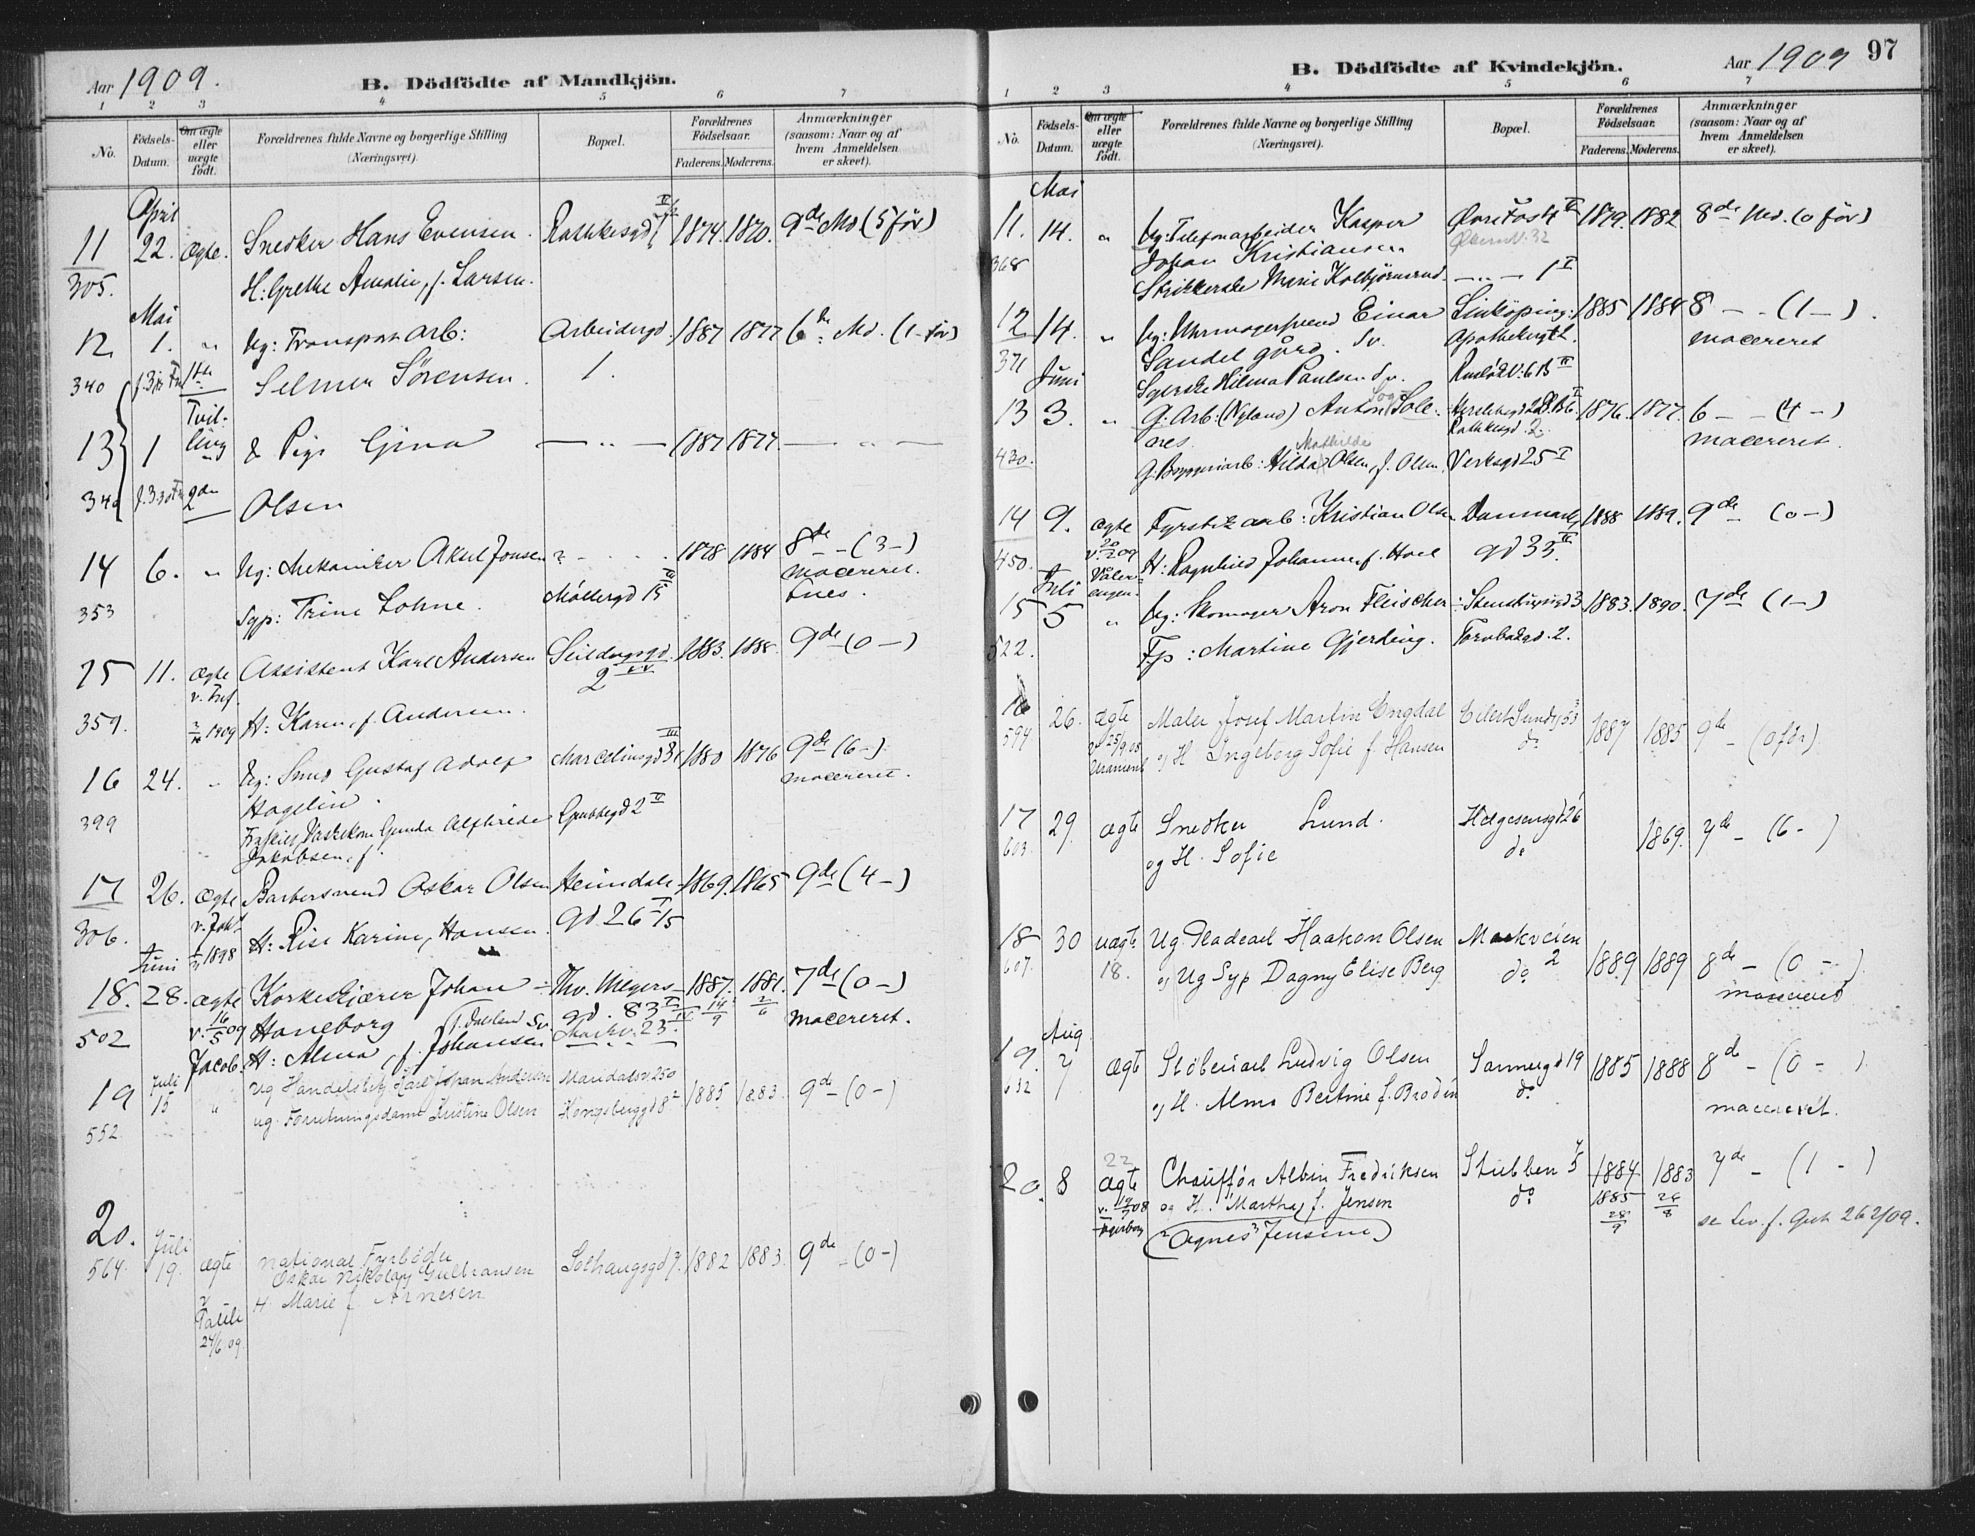 Aar 1909.
B. Dödfödte af Mandkjön.
1 2 3 4 5 6 7
No.
Födsels-Datum.
Om ægte eller uægte födt.
Forældrenes fulde Navne og borgerlige Stilling (Næringsvei).
Bopæl.
Forældrenes Födselsaar.
Faderens. Moderens.
Anmærkninger (saasom: Naar og af hvem Anmeldelsen er skeet).
April
11 22. ægte. Snedker Hans Evensen. Rathkesgd 7 1874. 1870. 9de Md (5 før)
305. H: Grethe Amalie, f. Larsen.
Mai
12 1. " Ug: Transportarb: Arbeidergd. 1887 1877 6te Md. (1 før)
340 1ste Selmer Sörensen. 1.
Tvilling
13 1 & Pige Gina — " — 1887 1877. — " —
340 2den Olsen
14 6. " Ug: Mekaniker Aksel Jonsen 1878 1884 8de - (3 -)
macereret.
353 Syp: Trine Lohne. Møllergd 15
15 11. ægte Assistent Karl Andersen Seildugsgd. 1883. 1888. 9de (0 -)
359. 1909 H: Karen, f. Andersen. 2
16 24. " Ug: Smed Gustaf Adolf Marcelinsgd 1880 1876 9de (6 -)
macereret.
Hagelin
399 Gunda Alfhilde Grubbegd 2 IV
Jakobsen, f.
17 26. ægte Barbersvend Oskar Olsen Heimdals- 1869. 1865 9de (4 -)
306. 1898 H: Karine, Hansen. gd 26
Juni
18. 28. ægte Korkeskjærer Johan Thv. Meyers- 1887. 1881. 7de (0 -)
502 v. 16/5 09 Haneborg gd. 83 14/9 2/6 macereret.
Jacob. H: Alma, f. Johansen Markv. 23.
19 Juli 15 " Ug Handelsbtj Karl Johan Andersen Maridalsv. 250 1885 1883. 9de (0 -)
552. ug. Forretningsdame Kristine Olsen Kongsberggd 8
20. Juli
564. 19. ægte national Fyrbøder Solhaugsgd 7. 1882 1883. 9de - (0 -)
Oskar Nikolay Gulbransen
H. Marie f Arnesen
Pauli
24/6 09
B. Dödfödte af Kvindekjön.
Aar 1909 97
1 2 3 4 5 6 7
No.
Födsels-Datum.
Om ægte eller uægte födt.
Forældrenes fulde Navne og borgerlige Stilling (Næringsvei).
Bopæl.
Forældrenes Födselsaar.
Faderens. Moderens.
Anmærkninger (saasom: Naar og af hvem Anmeldelsen er skeet).
Mai
11. 14. " Ug: Telefonarbeider Kasper 1879. 1882 8de Md. (0 før)
368 Johan Kristiansen
Strikkerske Marie Kolbjörnsrud — " — 1 I
12 14. " Ug: Uhrmagersvend Einar Linköping: 1885 1884 8 - - (1 -)
macereret
371 Sandelgård. Sv. Apothekergt
Juni Syerske Hilma Paulsen Sv.
13 3. " G. Arb: (Nyland) Anton Sol- 1876. 1877. 6 - - (4 -)
macereret.
nes. Rathkesgd. 2
430. G. Bryggeriarb: Hilda Mathilde Olsen, f. Olsen, Verksgd 25 I
14 9. ægte Fyrstikarb: Kristian Olsen Danmarks- 1888 1889. 9de (0 -)
450. v. 20/2 09 H: Ragnhild Johanne, f. Hoel gd 33
Juli Vålerengen.
15 5 " Ug: Skomager Aron Fleischer Stenstrupsgd 3 1883. 1890. 7de (1 -)
522. Fp: Martine Gjerding. Torvbakgd. 2.
16 26. ægte Maler Josef Martin Engdal Eilert Sundsgt 53 1887 1885 9de - (0 før)
594 v 25/9 08 og H Ingeborg Sofie f. Hansen do
Uranienb
17 29 ægte Snedker Lund. Helgesensgd 26 1869. 7de - (6 - )
603. og H. Sofie do
18 30 uægte Ug. Pladearb Haakon Olsen Markveien 2 1889 1889 8de - (0 - )
607. 18. og Ug Syp Dagny Elise Berg do macereret
Aug.
19. 7 ægte Støberiarb Ludvig Olsen Sannergd 19 1885 1888 8de - (0 - )
632 og H. Alma Bertine f. Brodin do macereret.
22
20. 8 ægte Chauffør Albin Fredriksen Stubben 5 1884 1883 7de - (1 - )
v. 12/7 08 og H. Martha f. Jensen do 1885 28/9 26/8
(Agnes Jensine) se Lev. f. Gut 262/09.